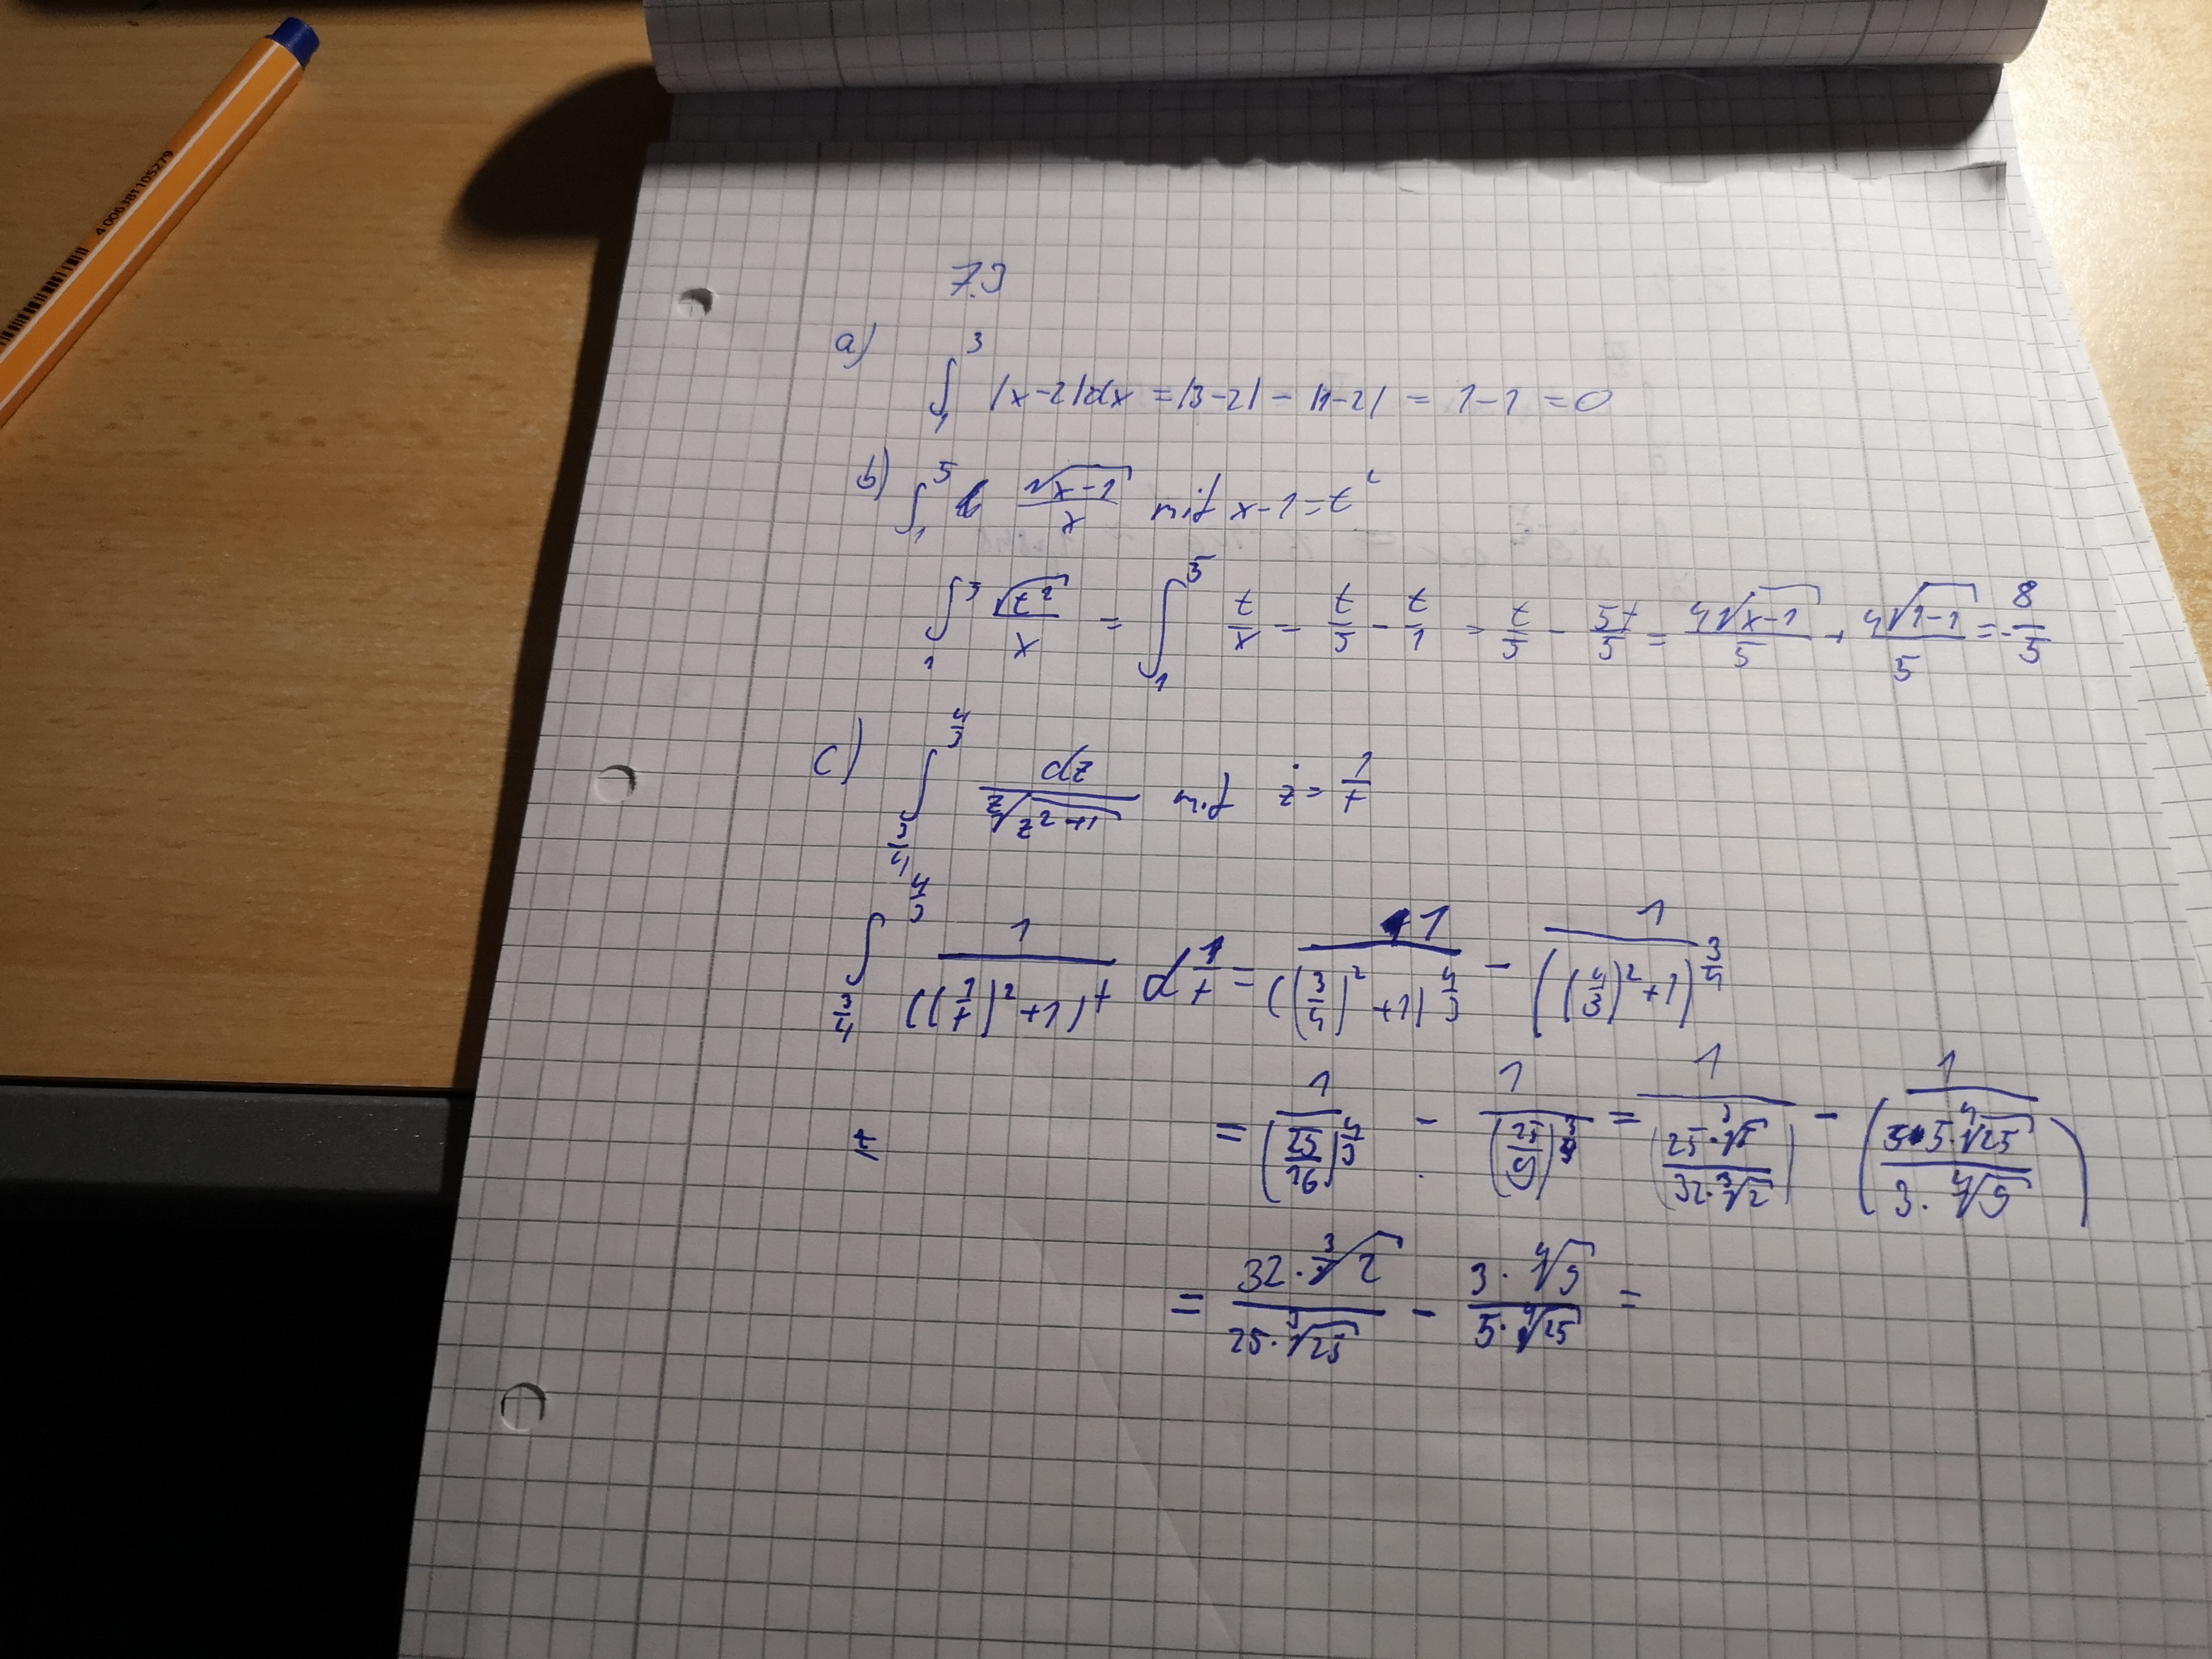 4006381105279
7.3
a) ∫₁³ |x-2|dx = |3-2| - |1-2| = 1-1 = 0
b) ∫₁⁵ √(x-1)/x mit x-1 = t²
∫₁³ √(t²)/x = ∫₁⁵ t/x = t/5 - t/1 = t/5 - 5t/5 = 4√(x-1)/5 - 4√(1-1)/5 = -8/5
c) ∫_{3/4}^{4/3} dz/(z√(z²+1)) mit z = 1/t
∫_{3/4}^{4/3} 1/((1/t)²+1)^t d 1/t = 1/((3/4)²+1)^{4/3} - 1/((4/3)²+1)^{3/4}
= 1/(25/16)^{4/3} - 1/(25/9)^{3/4} = 1/(25·∛5/(32·∛2)) - 1/(5·⁴√25/(3·⁴√9))
= 32·∛2/(25·∛25) - 3·⁴√9/(5·⁴√25) =